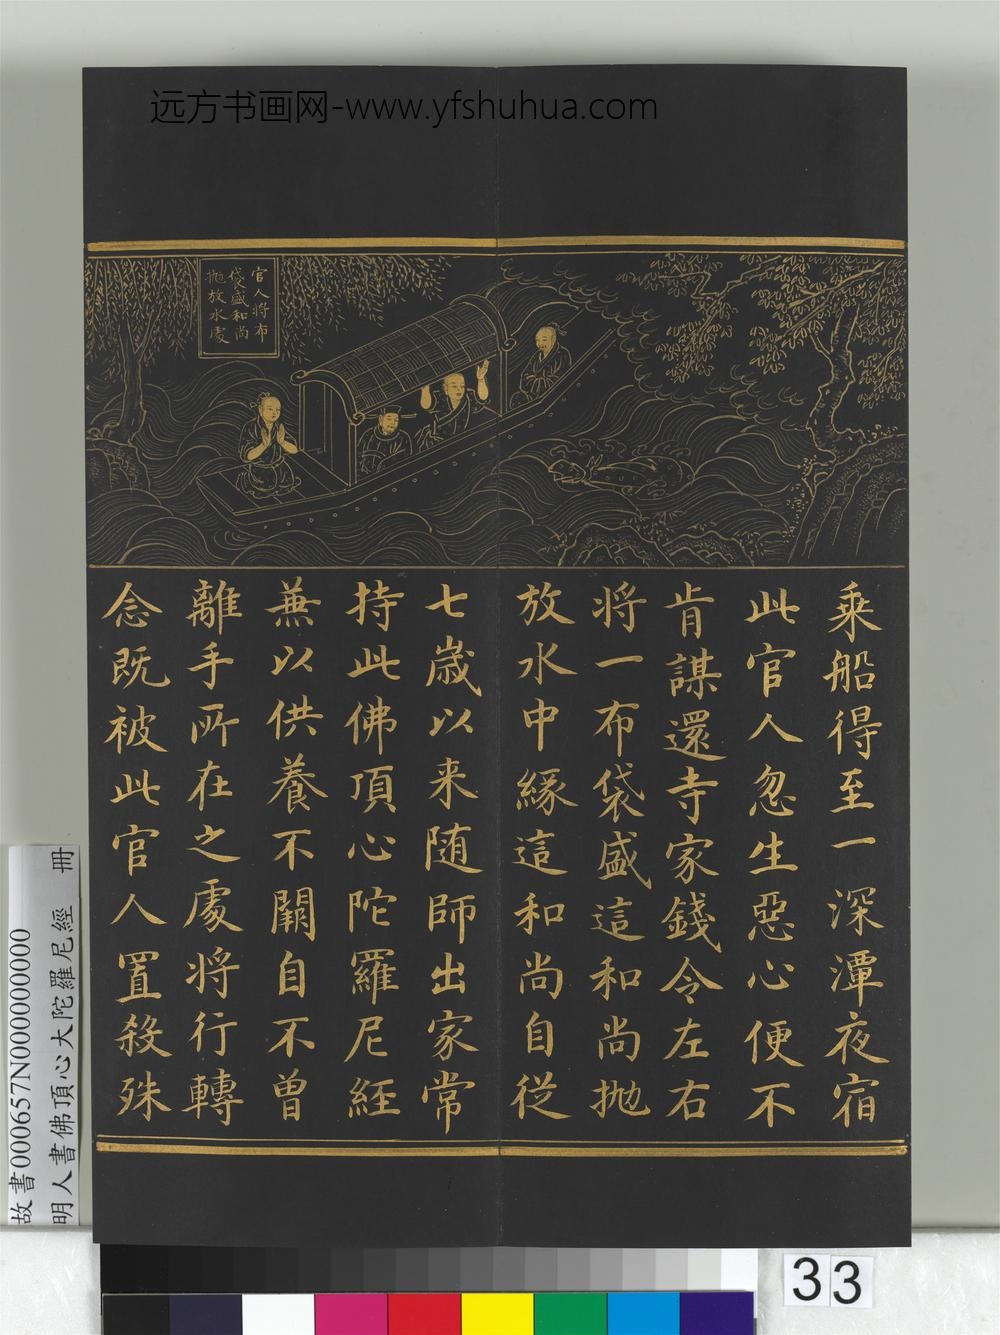 远方书画网-www.yfshuhua.com
官人将布
袋盛和尚
抛放水處
乘船得至一深潭夜宿
此官人忽生惡心便不
肯謀還寺家錢令左右
将一布袋盛這和尚抛
放水中緣這和尚自従
七歲以来随師出家常
持此佛頂心陀羅尼経
兼以供養不闕自不曾
離手所在之處将行轉
念既被此官人置殺殊
故書000657N000000000
明人書佛頂心大陀羅尼經 冊
33